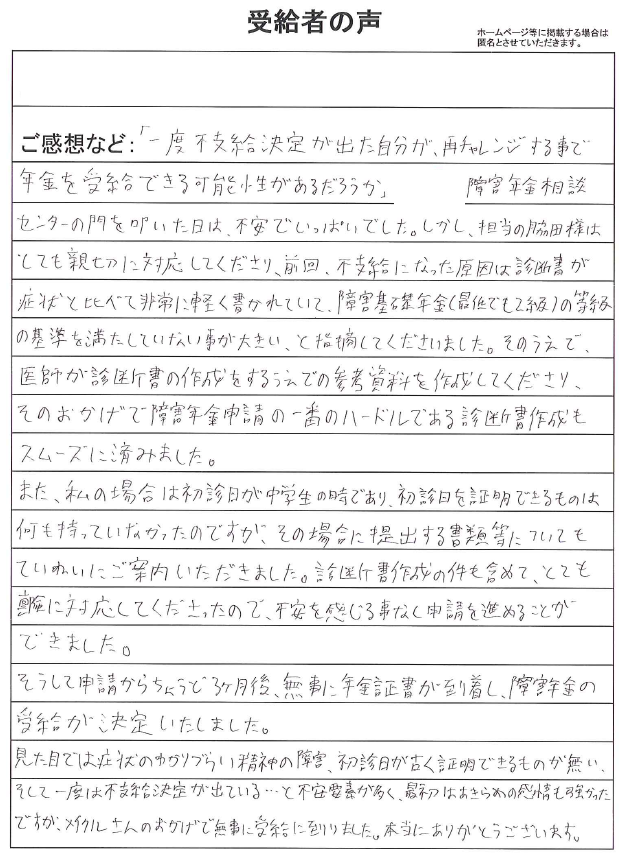 受給者の声
ホームページ等に掲載する場合は
匿名とさせていただきます。
ご感想など：「一度不支給決定が出た自分が、再チャレンジする事で
年金を受給できる可能性があるだろうか」　障害年金相談
センターの門を叩いた日は、不安でいっぱいでした。しかし、担当の脇田様は
とても親切に対応してくださり、前回、不支給になった原因は診断書が
症状と比べて非常に軽く書かれていて、障害基礎年金（最低でも2級）の等級
の基準を満たしていない事が大きい、と指摘してくださいました。そのうえで、
医師が診断書の作成をするうえでの参考資料を作成してくださり、
そのおかげで障害年金申請の一番のハードルである診断書作成も
スムーズに済みました。
また、私の場合は初診日が中学生の時であり、初診日を証明できるものは
何も持っていなかったのですが、その場合に提出する書類等についても
ていねいにご案内いただきました。診断書作成の件も含めて、とても
真摯に対応してくださったので、不安を感じる事なく申請を進めることが
できました。
そうして申請からちょうど3ヶ月後、無事に年金証書が到着し、障害年金の
受給が決定いたしました。
見た目では症状のわかりづらい精神の障害、初診日が古く証明できるものが無い、
そして一度は不支給決定が出ている…と不安要素が多く、最初はあきらめの感情も強かった
ですが、メイクルさんのおかげで無事に受給に到りました。本当にありがとうございます。